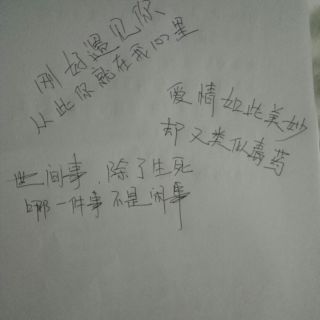 刚好遇见你
从此你就在我心里
爱情如此美妙
却又类似毒药
世间事,除了生死
哪一件事不是闲事